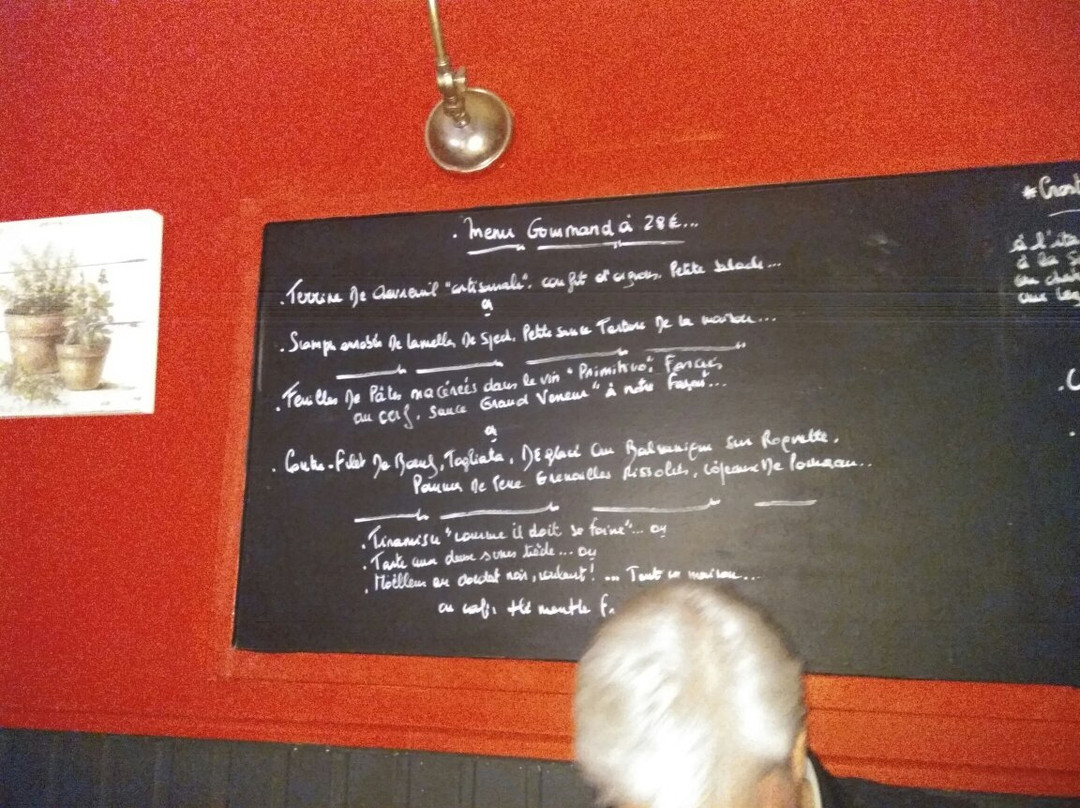 . Menu Gourmand à 28€...
. Terrine De chevreuil "artisanale", confit d'oignons, Petite salade...
ou
. De lamelles De Speck, Petite sauce Tartare De la maison...
. Feuilles De Pâtes macérées dans le vin "Primitivo", Farcies
au cerf, sauce Grand Veneur "à notre façon"...
ou
. Contre-Filet De Boeuf, Tagliata, Déglacé au Balsamique sur Roquette,
Pomme De Terre Grenailles Rissolées, copeaux De Parmesan...
. Tiramisu "comme il doit se faire"... ou
. Tarte aux deux tiède... ou
. Moëlleux au chocolat noir, coulant! ... Tout se maison...
ou café, thé menthe
à l'
à la
au
aux